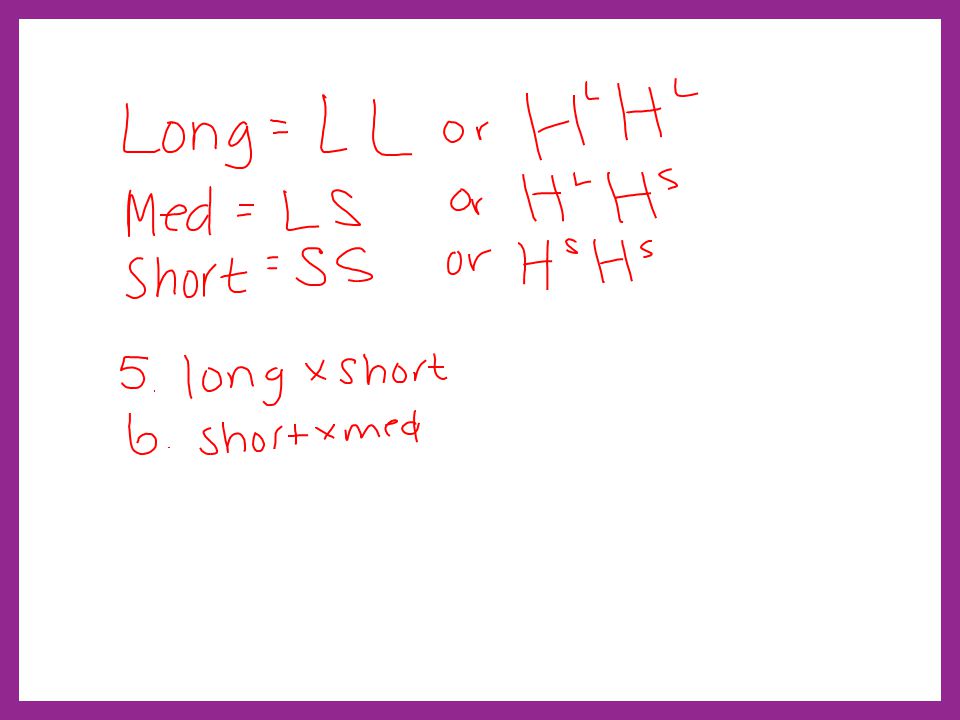 Long = LL or HᴸHᴸ
Med = LS or HᴸHˢ
Short = SS or HˢHˢ
5. long x short
6. short x med